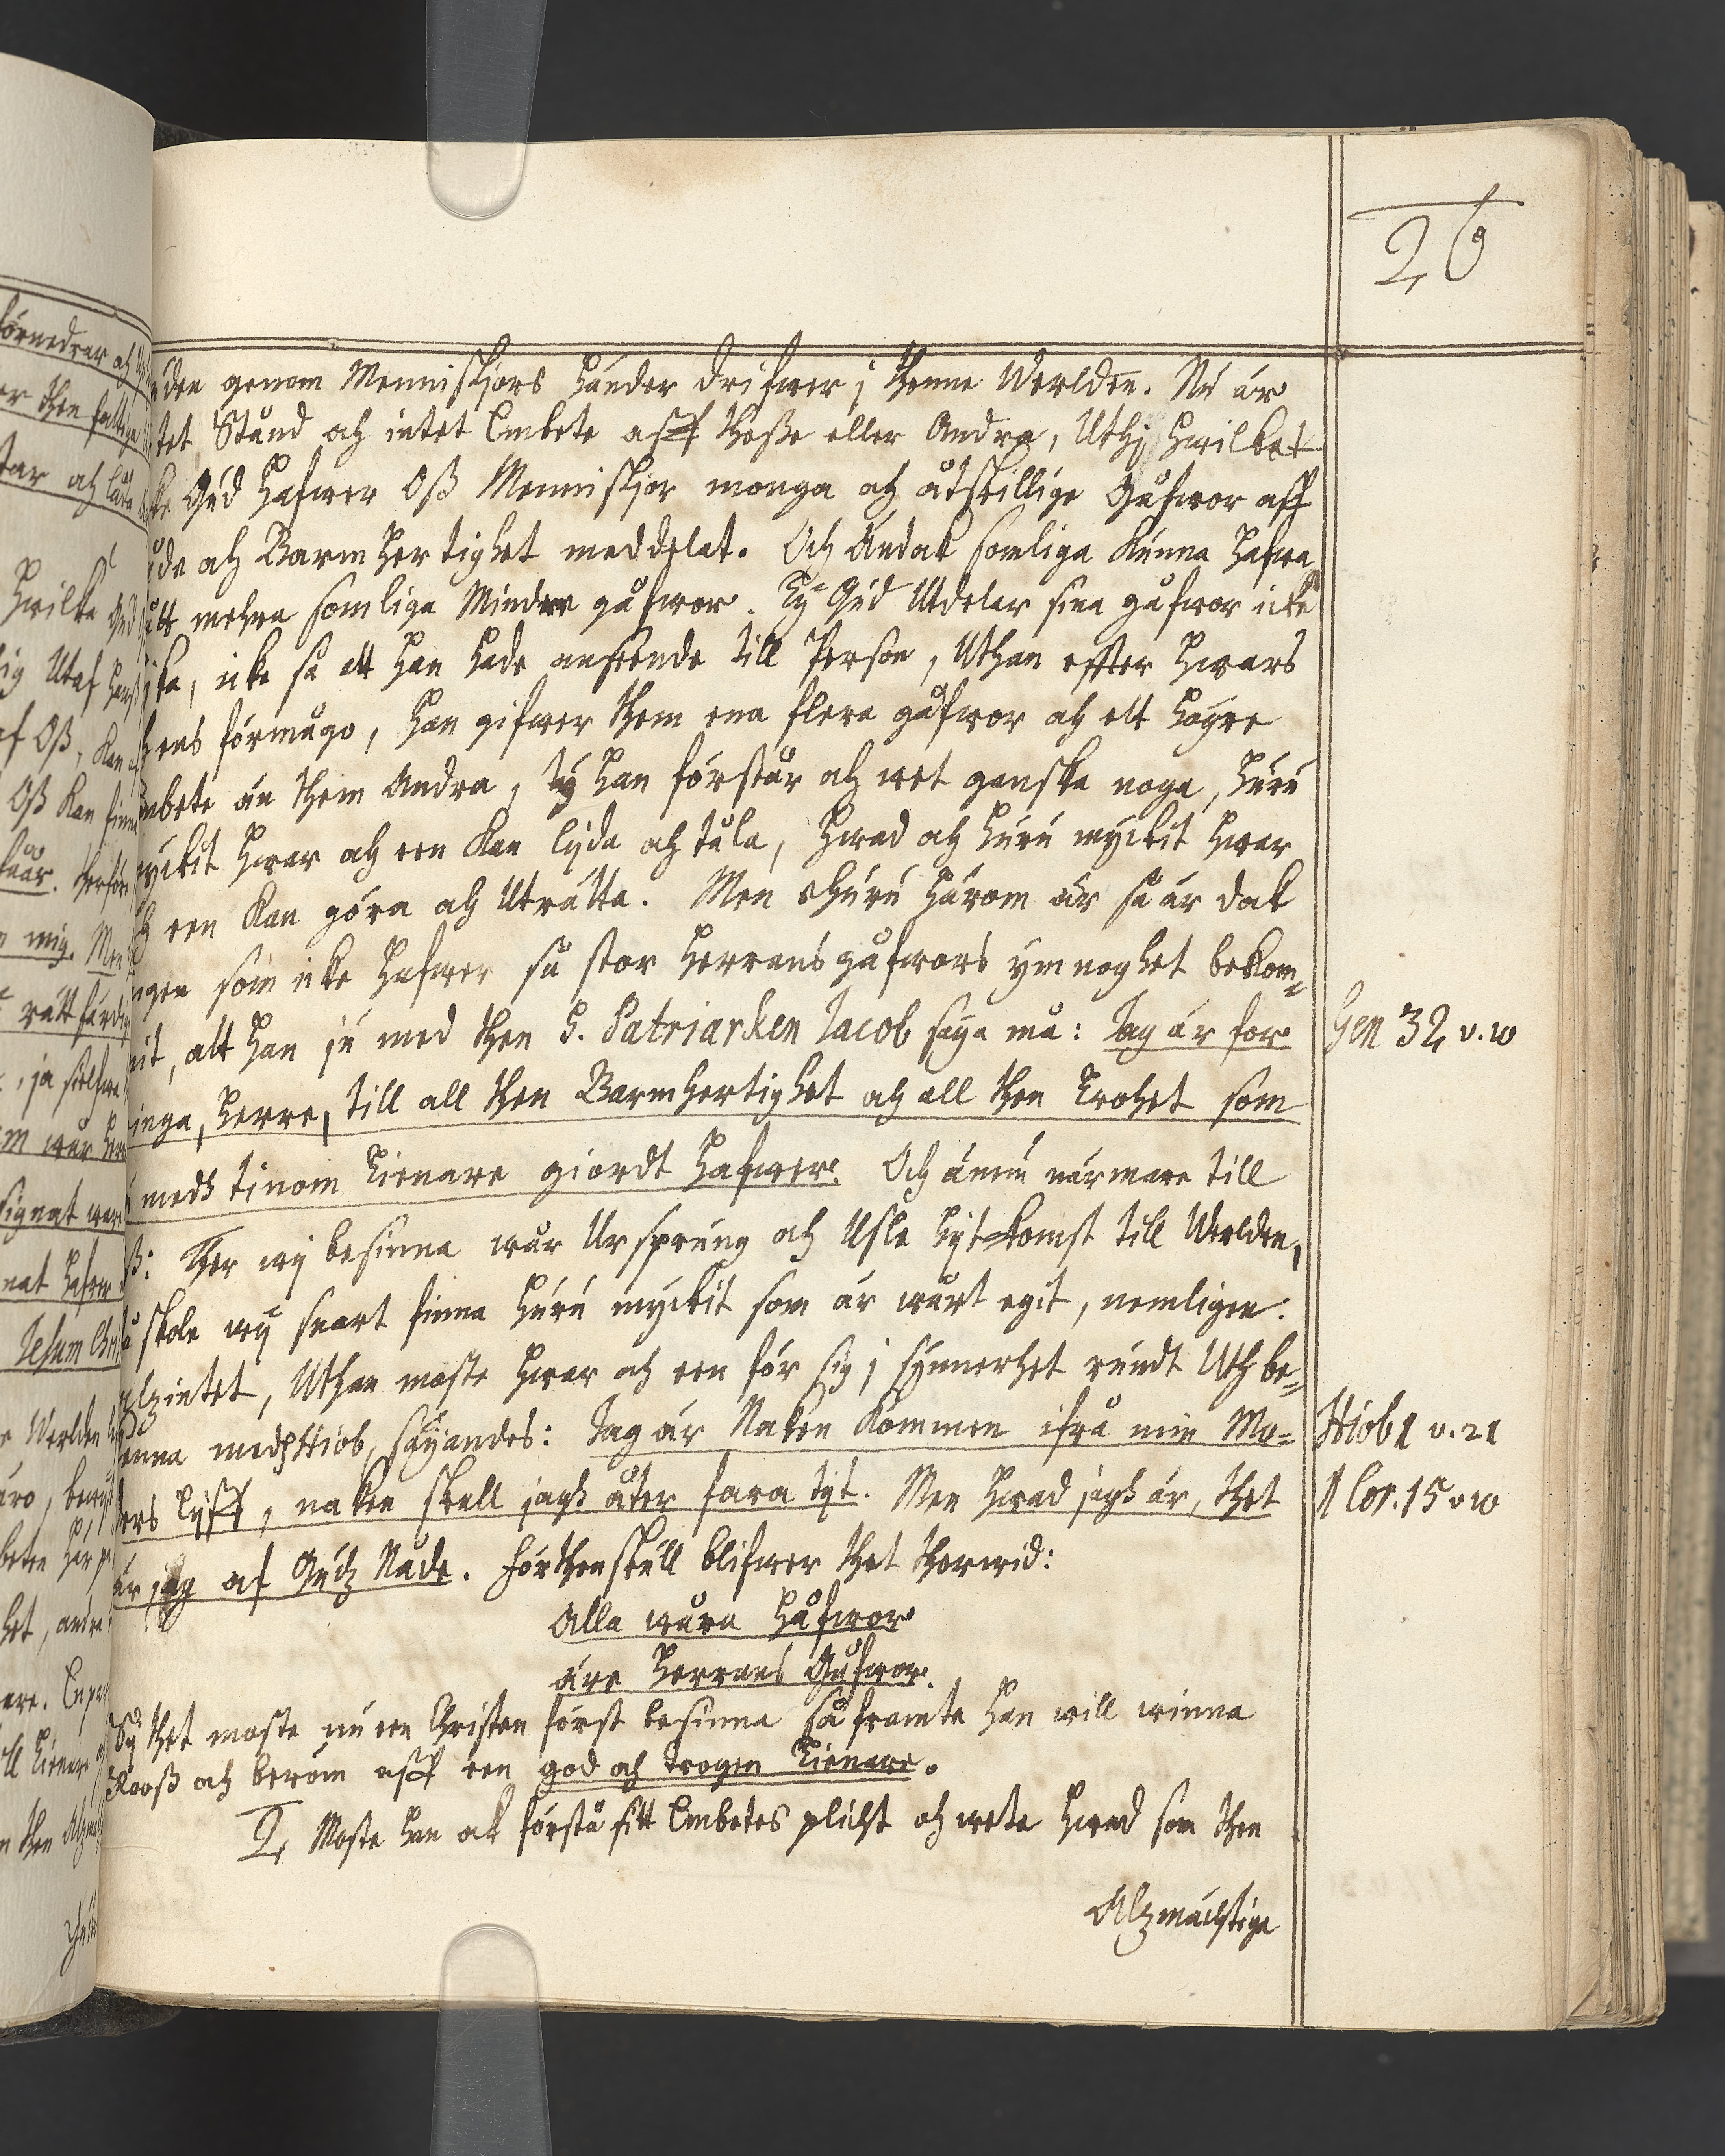 26
den genom Menniskjors händer drifwer j thenne Werlden. Nu är
tet Stånd och intet Embete aff thesse eller Andra, Uthj hwilket
ke Gud hafwer Oß Menniskjor monga och åtskillige Gåfwor aff
åde och Barmhertighet meddelat. Och Ändock somliga Kunna hafwa
ått mehra somliga Mindre gåfwor. Ty Gud Utdelar sina gåfwor icke
ika, icke så att han hade anseende till Person, Uthan effter hwars
ens förmågo, han gifwer them ena flera gåfwor och ett högre
mbete än them Andra, ty han förstår och wet ganske noga, huru
myckit hwar och een Kan lijda och tåla, hwad och huru myckit hwar
h een Kan göra och Uträtta. Men ehuru härom är så är dock
ngen som icke hafwer så stor Herrans gåfwors ymnoghet bekom-
mit, att han ju med then H. Patriarken Jacob säya må: Jag är for
inga, Herre, till all then Barmhertighet och all then Trohet som
medh tinom Tienare giordt hafwer. Och ännu närmare till
ß: Ther wij besinna wår Ursprung och Usle hijtkomst till Werlden,
å skole wij snart finna huru myckit som är wårt egit, nemligen:
alzintet, Uthan moste hwar och een för sig j synnerhet rundt Uthbe-
enna medh Hiob, säyandes: Jag är Naken Kommen ifrå min Mo-
ders lijff, naken skall jagh åter fara tijt. Men hwad jagh är, thet
är jag af Gudz Nåde. Förthenskull blifwer thet therwid:
Alla wåra Håfwor
äre Herrans Gåfwor.
Sij thet moste nu een Christen först besinna så framte han will winna
Rooß och beröm aff een god och trogen Tienare.
2, Moste han ock förstå sitt Embetes plicht och weta hwad som then
Alzmächtige
Gen 32 v. 10
Hiob 1 v. 21
1 Cor. 15 v 10